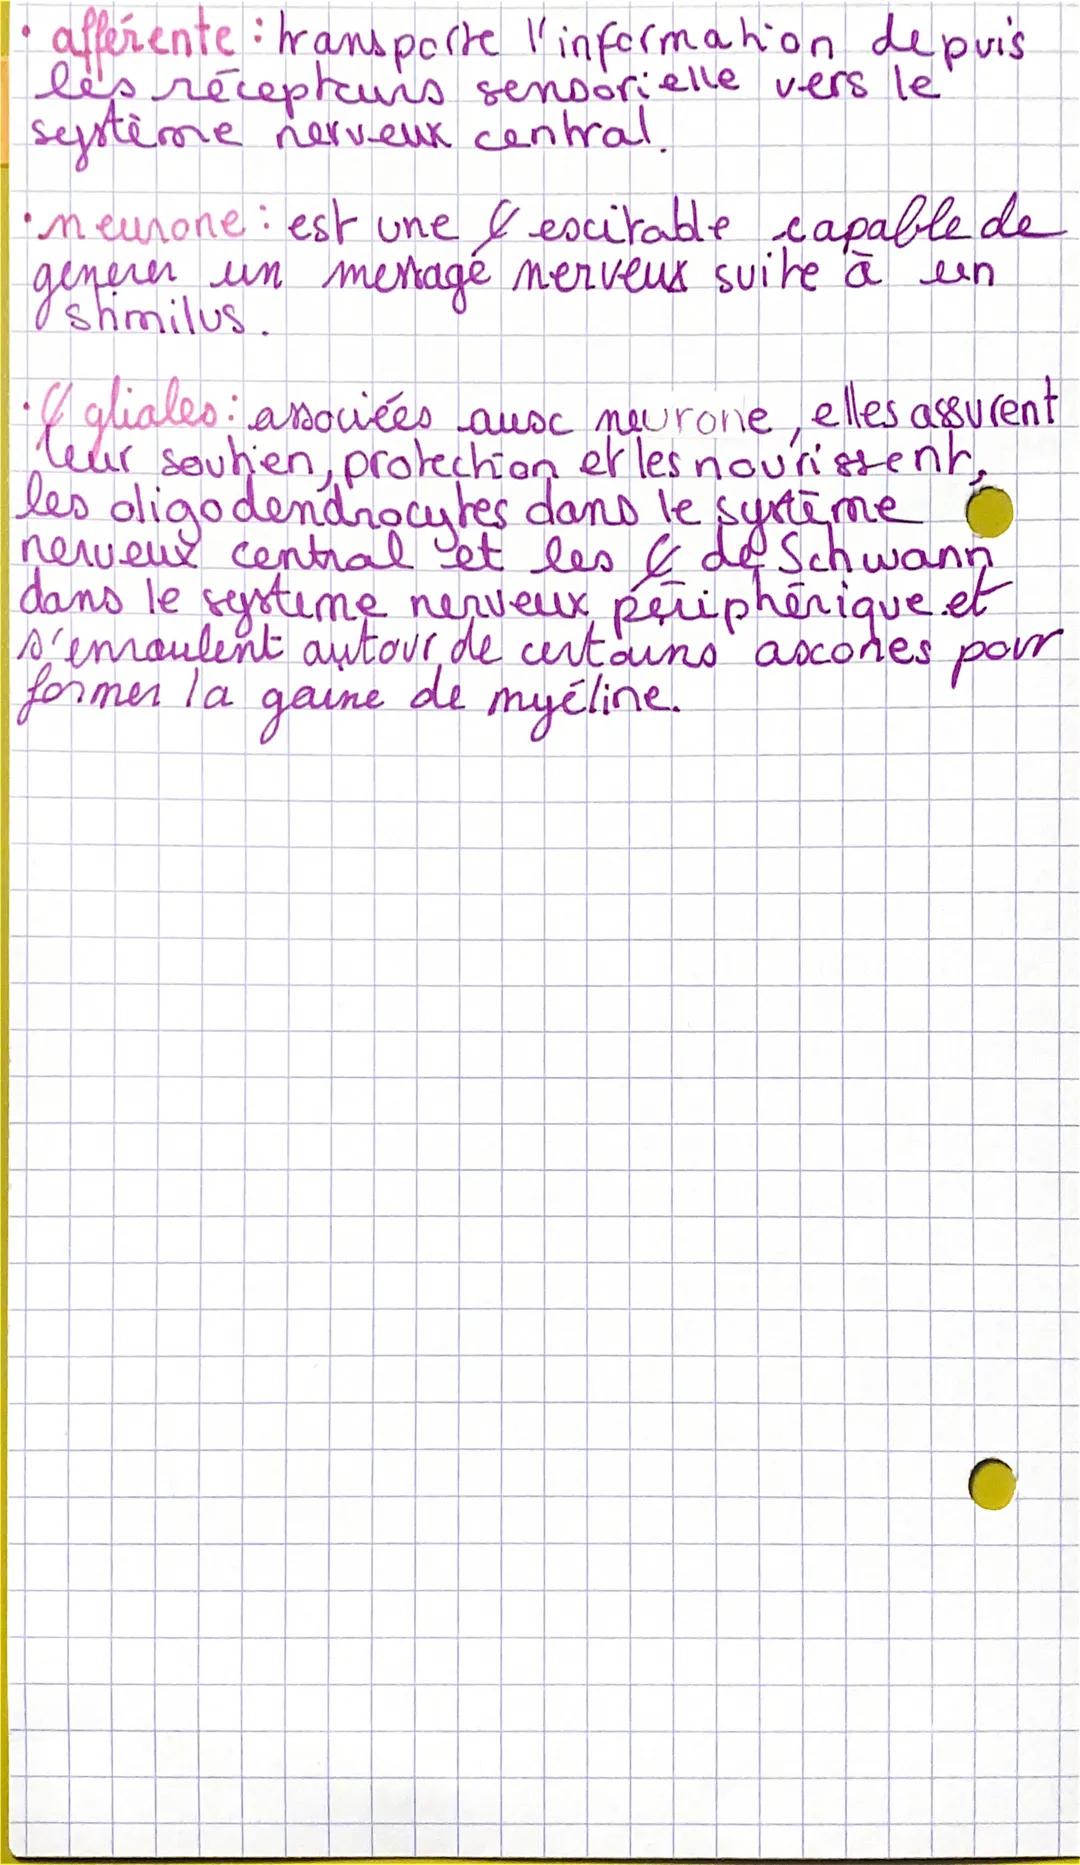 • afférente : transporte l'information depuis
les récepteurs sensorielle vers le
système nerveux central.
• neurone : est une ₵ excitable capable de
generer un message nerveux suite à un
stimilus.
• ₵ gliales : associées aux neurone, elles assurent
leur soutien, protection et les nourissent,
les oligodendrocytes dans le système
nerveux central et les ₵ de Schwann
dans le systeme nerveux périphérique et
s'enroulent autour de certains axones pour
former la gaine de myéline.